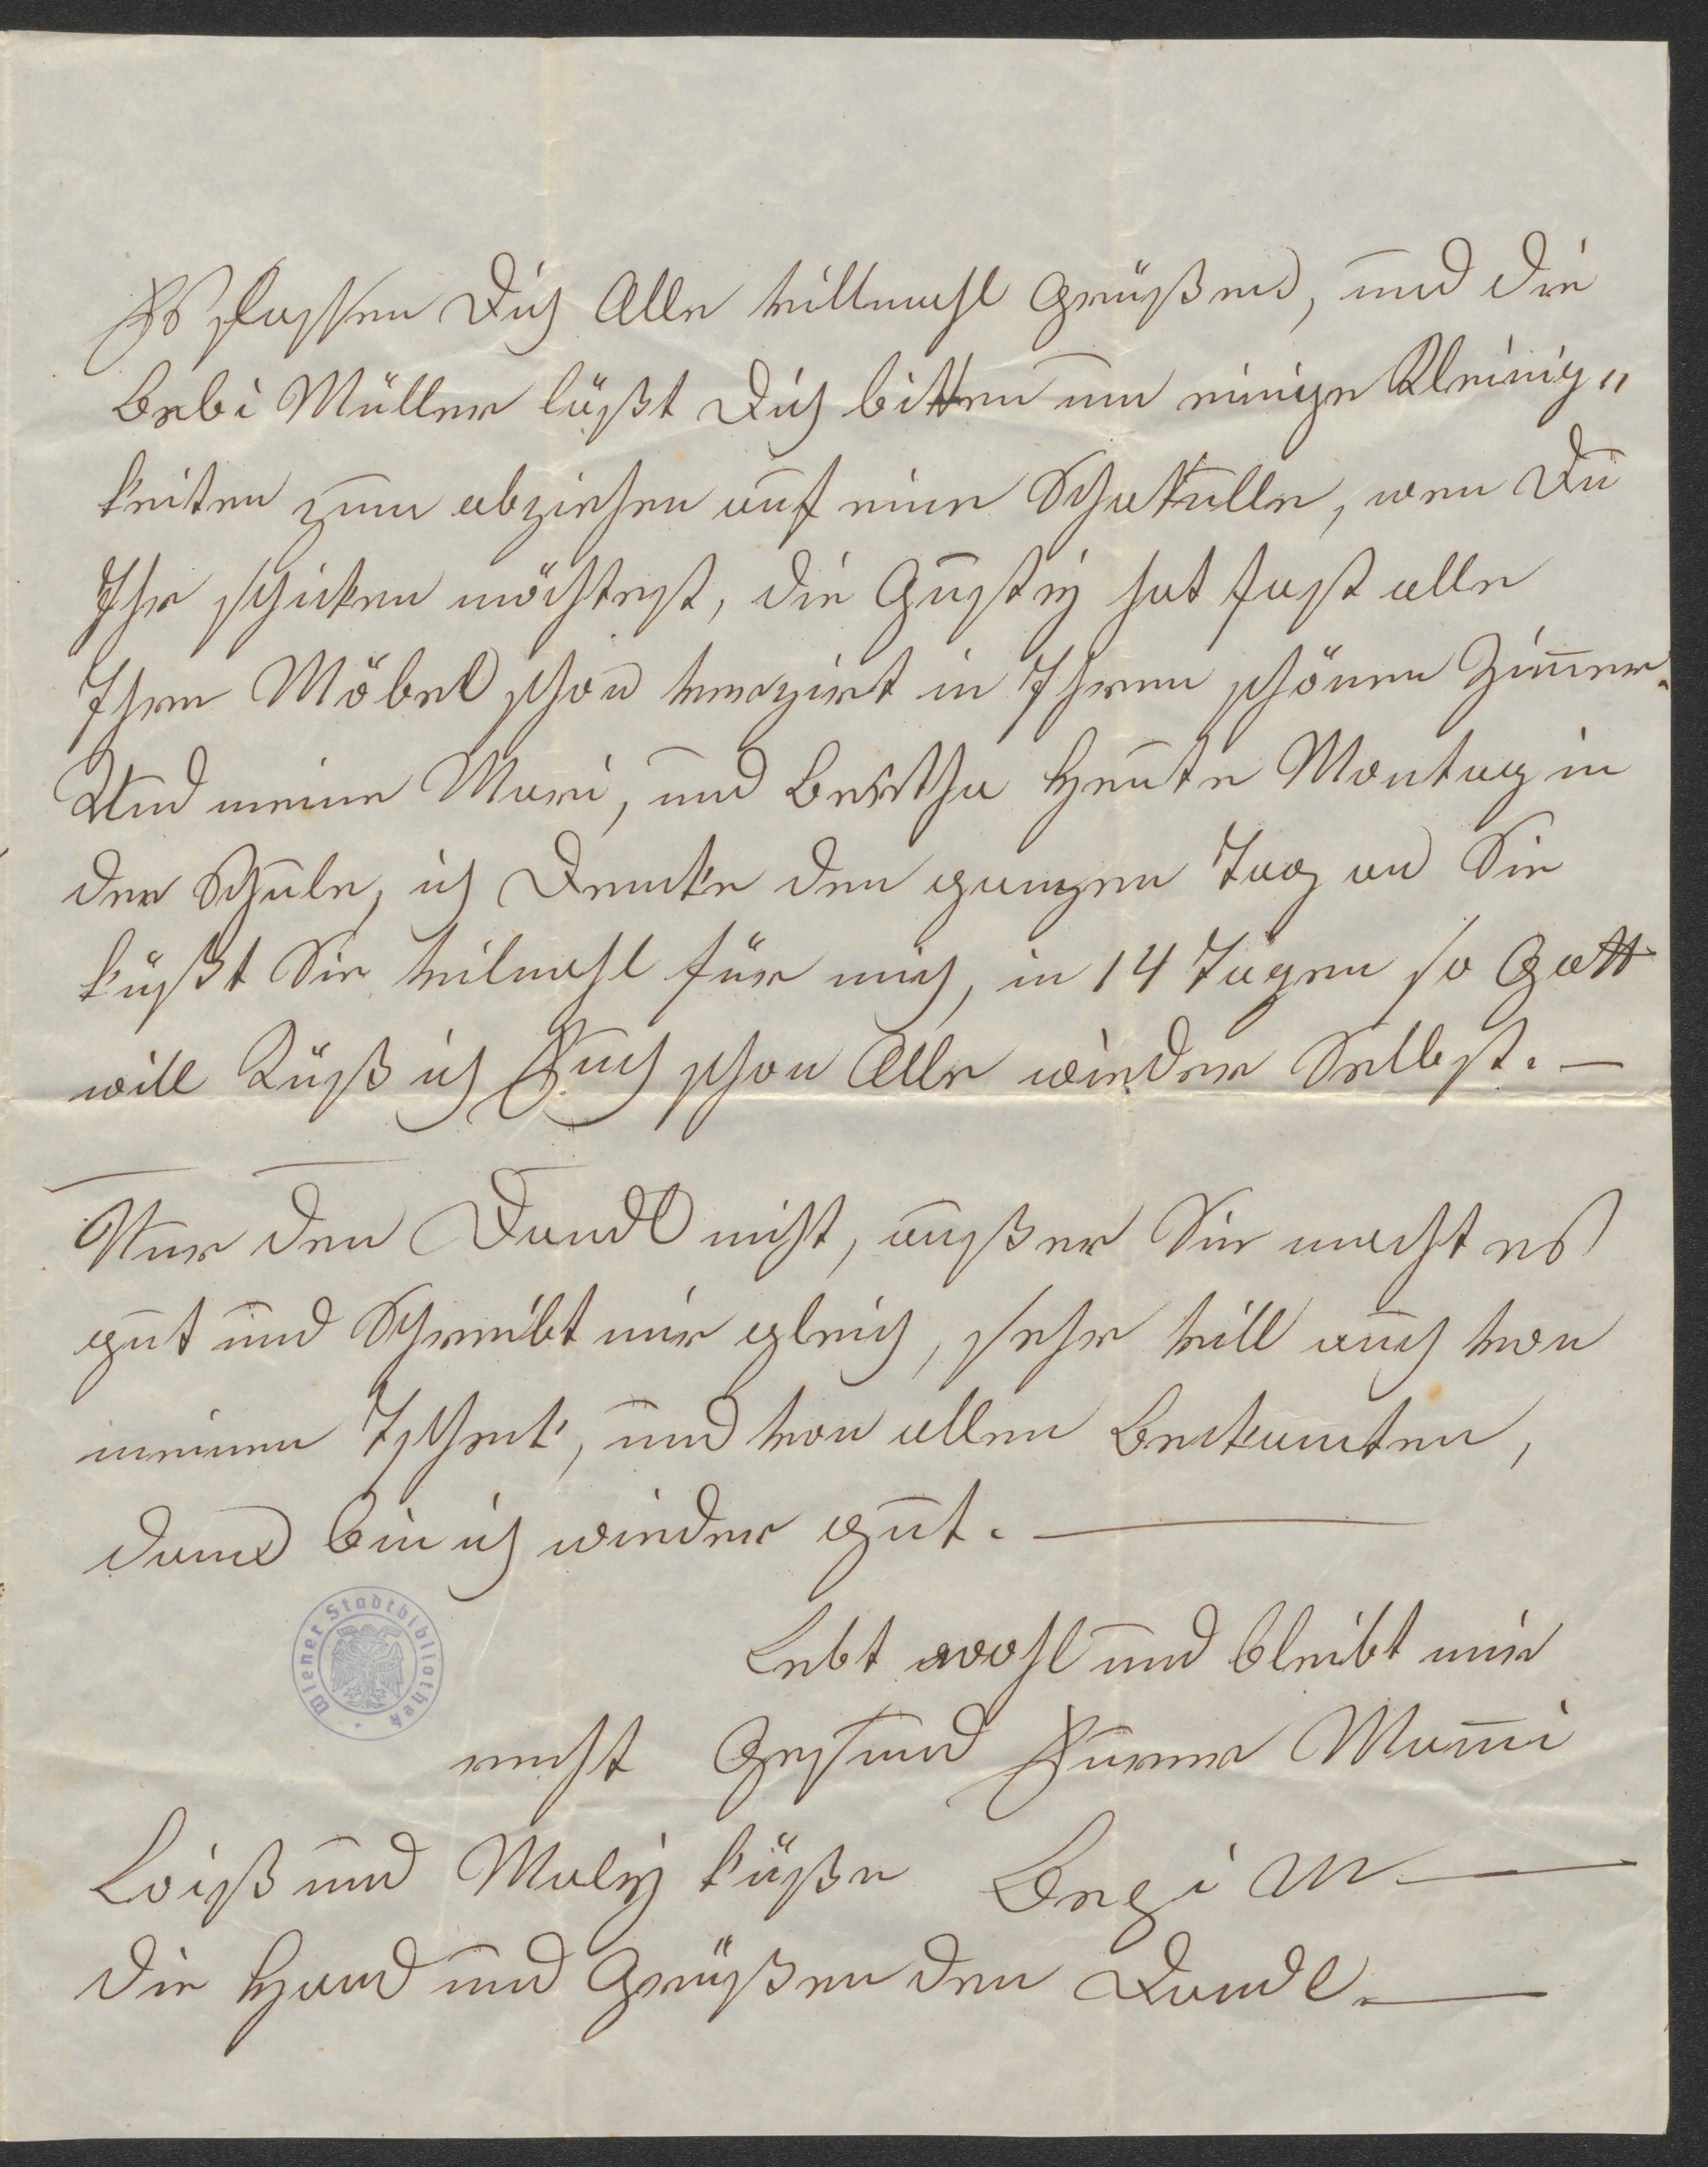 Es lassen Dich Alle villmahl Grüßen, und die
Bebi Müller läßt Dich bitten um einige Kleinig„
keiten zum abziehen auf eine Schatulle, wen Du
Ihr schicken möchtest, die Gusty hat fast alle
Ihre Möbel schon verzirt in Ihrem schönen Zim̅er.
Und meine Mari, und Bertha Heute Montag in
der Schule, ich Denke den ganzen Tag an Sie
küßt Sie vilmahl für mich, in 14 Tagen so Gott
will Küß ich Euch schon Alle wieder Selbst. —
Nur den Dandl nicht, außer Sie macht es
gut und Schreibt mir gleich, sehr vill auch von
meinen, und von allen Bekannten,
dann bin ich wieder gut. —
Lebt wohl und bleibt mir
recht Gesund Eurer Mam̅i
Loiß und Maly küße M —
die Hand und Grüßen den Dandl. —
Wiener Stadtbibliothek